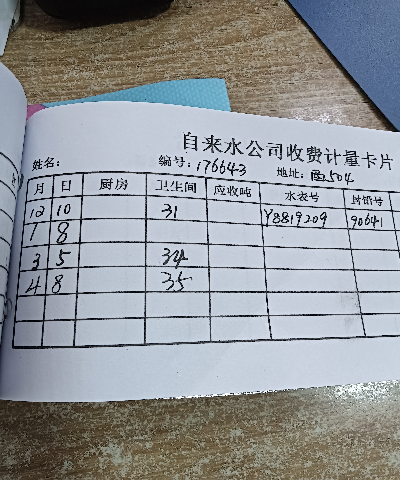 自来水公司收费计量卡片
姓名: 编号: 176643 地址: 西504
月 日 厨房 卫生间 应收吨 水表号 封铅号
12 10 31 Y8819209 90641
1 8
3 5 34
4 8 35